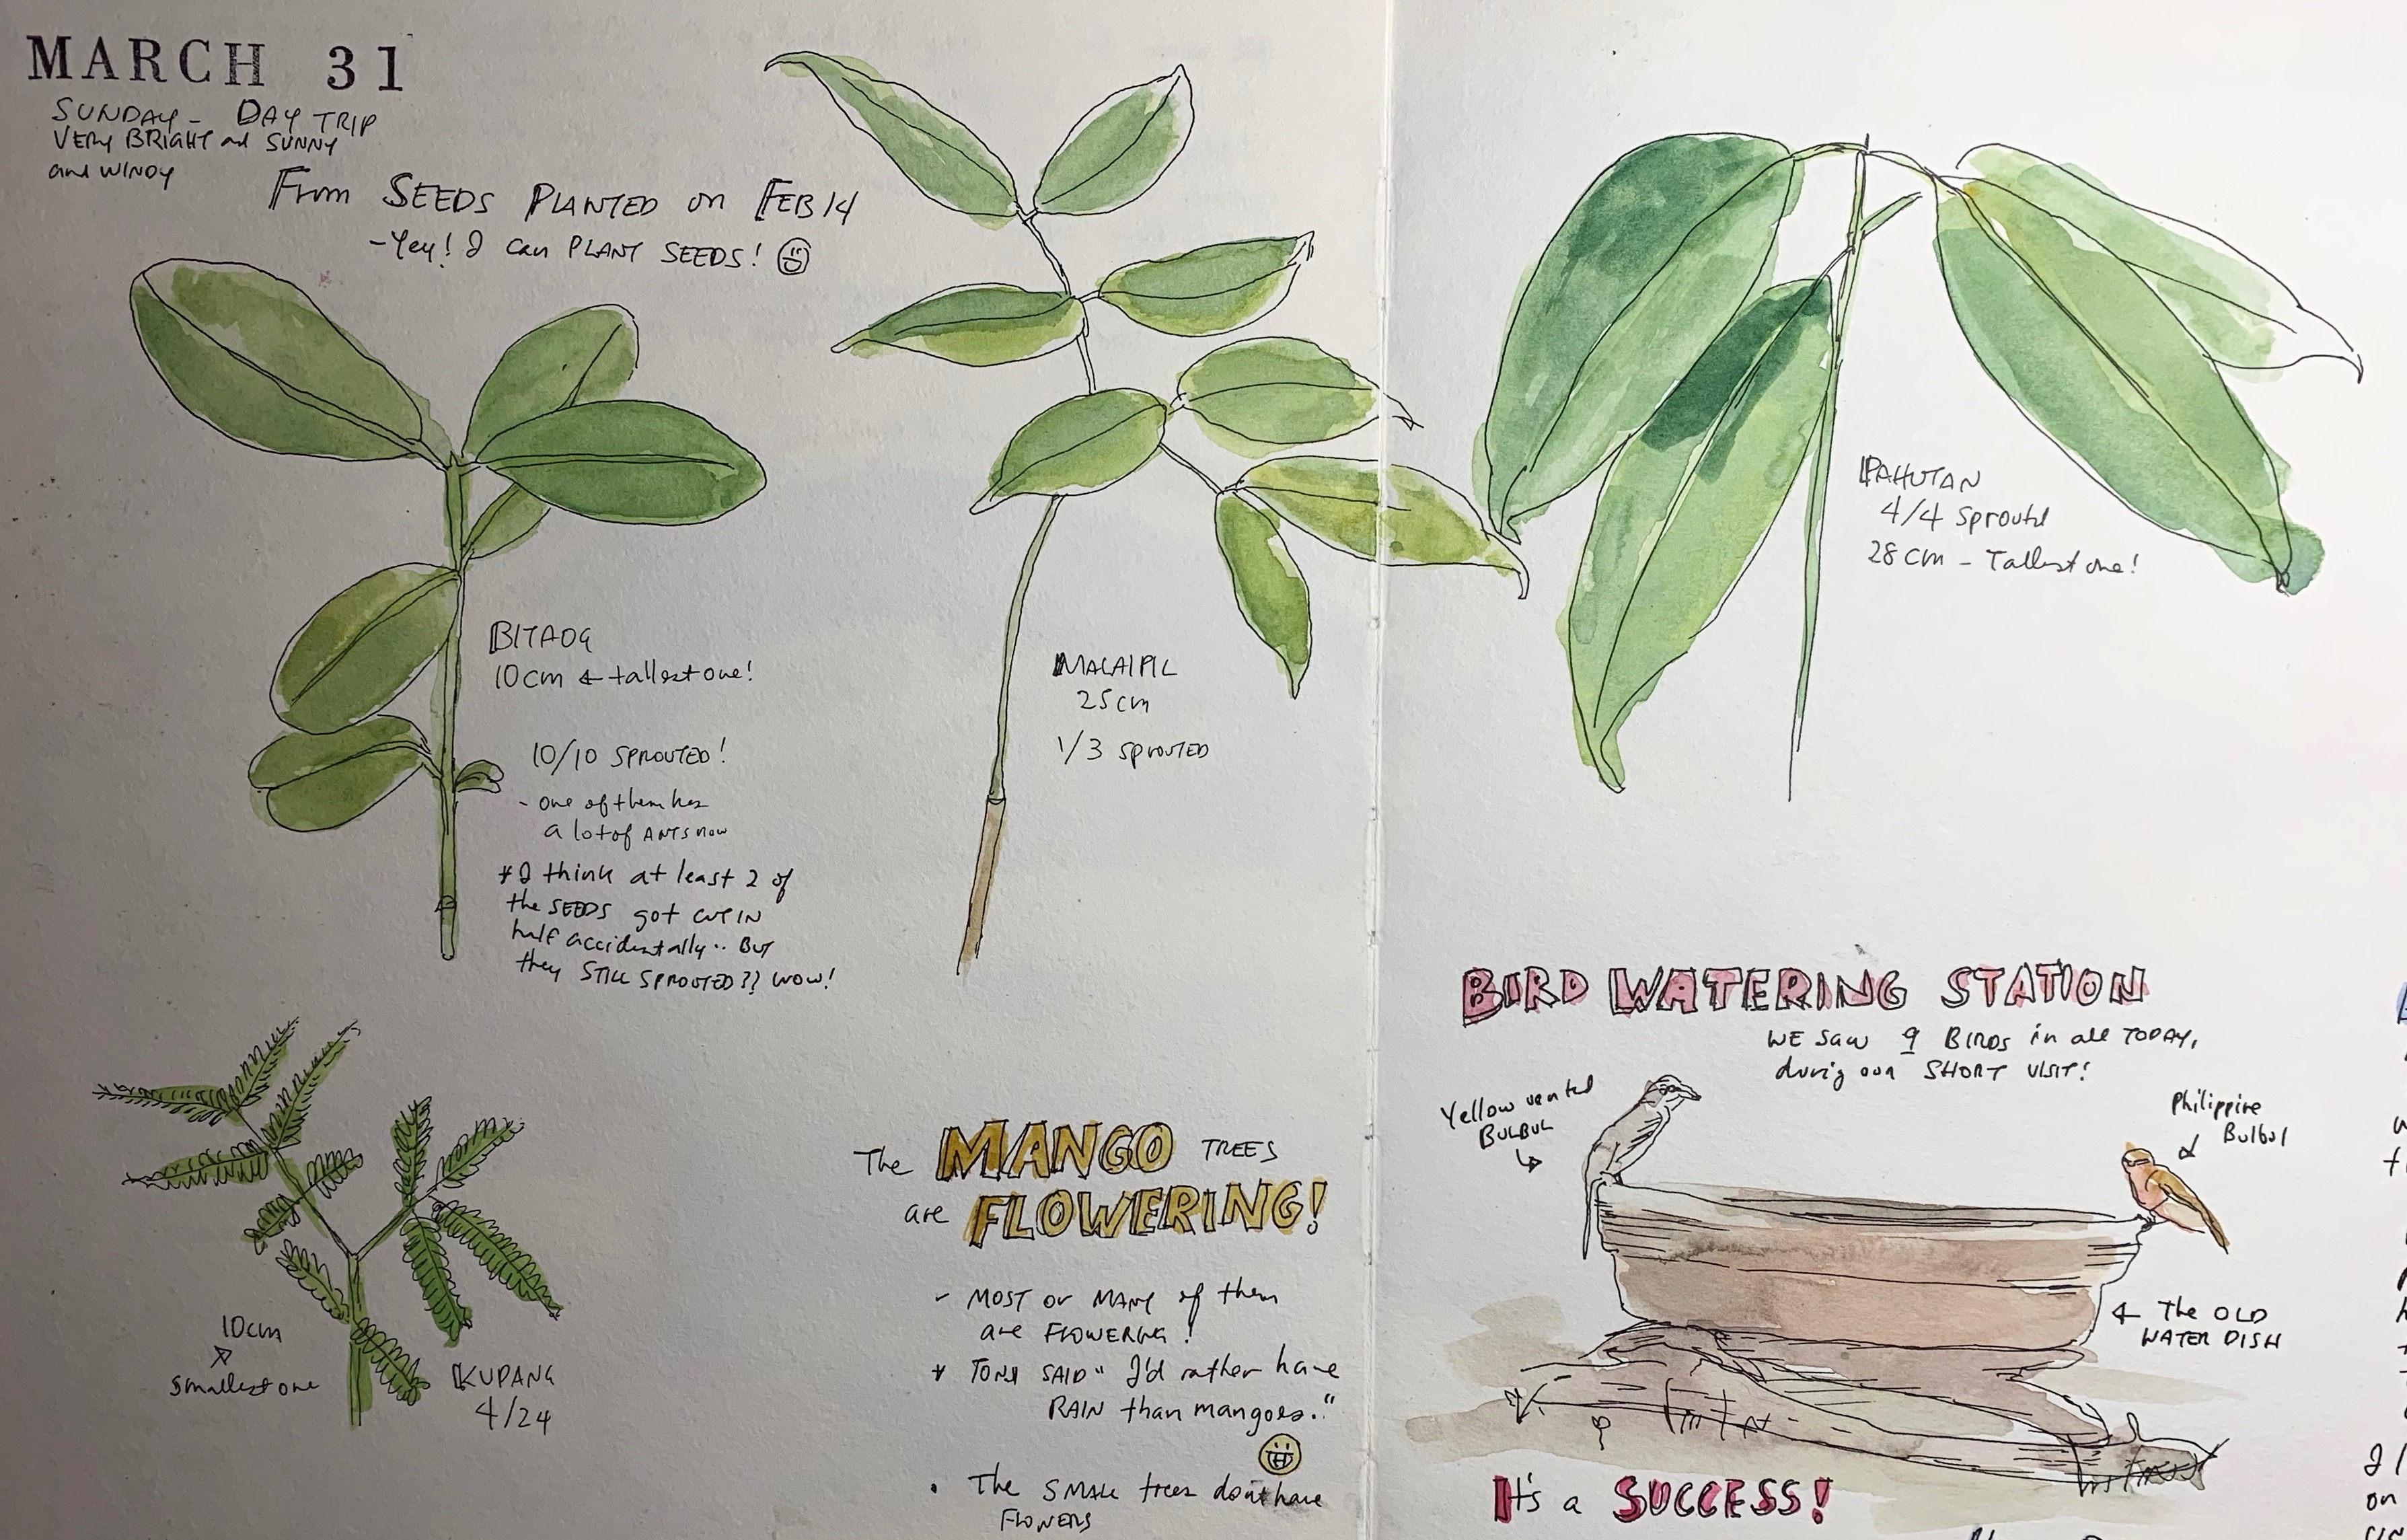 MARCH 31
SUNDAY - DAY TRIP
VERY BRIGHT and SUNNY
and WINDY
From SEEDS PLANTED on FEB 14
- Yey! I can PLANT SEEDS!
BITAOG
10cm ← tallest one!
10/10 SPROUTED!
- one of them has
a lot of ANTS now
* I think at least 2 of
the SEEDS got cut IN
half accidentally.. BUT
they STILL SPROUTED?? WOW!
MALAIPIL
25cm
1/3 sprouted
PAHUTAN
4/4 sprouted
28cm - Tallest one!
10cm
smallest one
KUPANG
4/24
The MANGO TREES
are FLOWERING!
- MOST or MANY of them
are FLOWERING!
* TONY SAID "I'd rather have
RAIN than mangoes."
• The SMALL trees don't have
FLOWERS
BIRD WATERING STATION
WE saw 9 BIRDS in all TODAY,
during our SHORT VISIT!
Yellow vented
BULBUL
Philippine
Bulbul
← The OLD
WATER DISH
It's a SUCCESS!